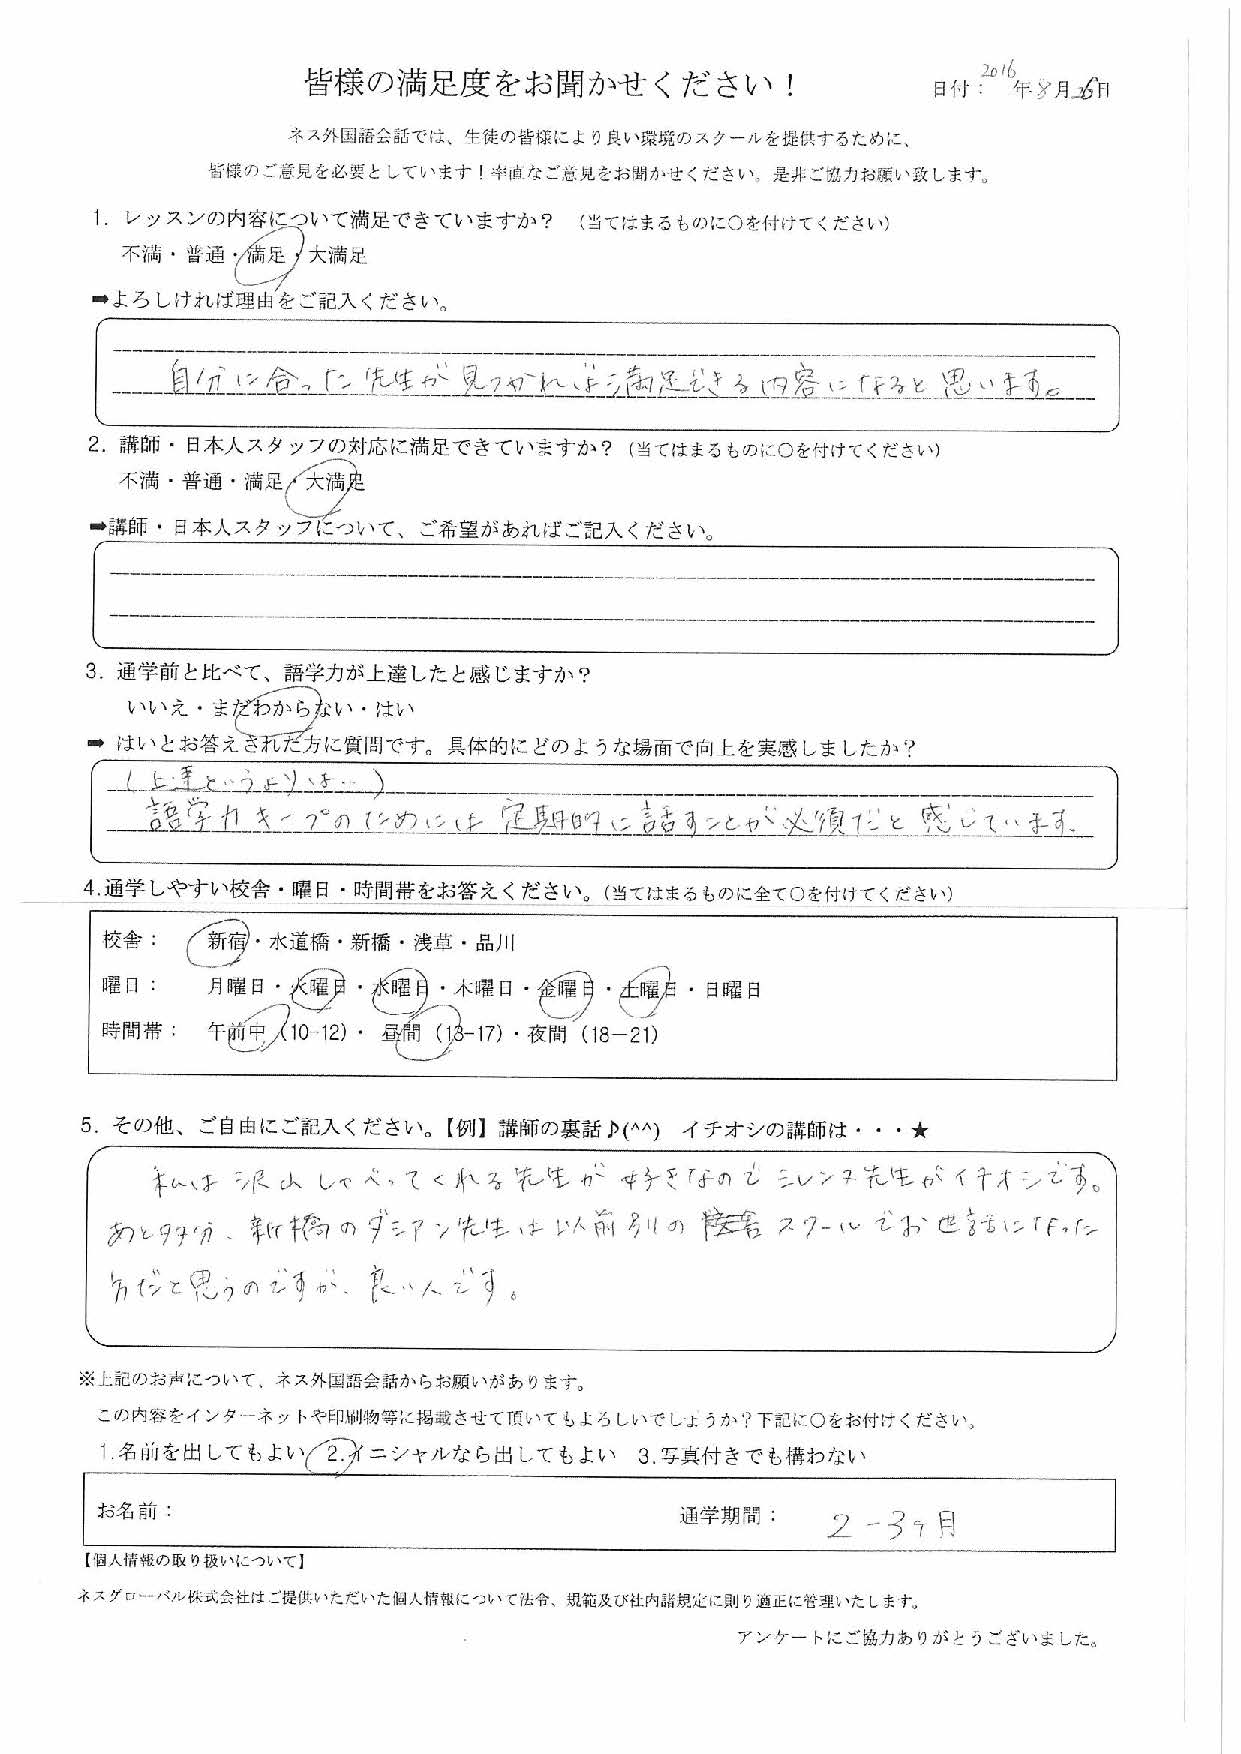 皆様の満足度をお聞かせください！
日付： 2016 年 8 月 26 日
ネス外国語会話では、生徒の皆様により良い環境のスクールを提供するために、
皆様のご意見を必要としています！率直なご意見をお聞かせください。是非ご協力お願い致します。
1. レッスンの内容について満足できていますか？ （当てはまるものに〇を付けてください）
不満・普通・満足・大満足
➡よろしければ理由をご記入ください。
自分に合った先生が見つかればより満足できる内容になると思います。
2. 講師・日本人スタッフの対応に満足できていますか？（当てはまるものに〇を付けてください）
不満・普通・満足・大満足
➡講師・日本人スタッフについて、ご希望があればご記入ください。
3. 通学前と比べて、語学力が上達したと感じますか？
いいえ・まだわからない・はい
➡ はいとお答えされた方に質問です。具体的にどのような場面で向上を実感しましたか？
（上達というよりは…）
語学力キープのためには定期的に話すことが必須だと感じています。
4.通学しやすい校舎・曜日・時間帯をお答えください。（当てはまるものに全て〇を付けてください）
校舎： 新宿・水道橋・新橋・浅草・品川
曜日： 月曜日・火曜日・水曜日・木曜日・金曜日・土曜日・日曜日
時間帯： 午前中（10-12）・ 昼間（13-17）・夜間（18－21）
5. その他、ご自由にご記入ください。【例】講師の裏話♪(^^) イチオシの講師は・・・★
私は沢山しゃべってくれる先生が好きなので先生がイチオシです。
あと多分、新橋のダミアン先生は以前別のスクールでお世話になった
方だと思うのですが、良い人です。
※上記のお声について、ネス外国語会話からお願いがあります。
この内容をインターネットや印刷物等に掲載させて頂いてもよろしいでしょうか？下記に〇をお付けください。
1.名前を出してもよい 2.イニシャルなら出してもよい 3.写真付きでも構わない
お名前： 通学期間： 2－3ヶ月
【個人情報の取り扱いについて】
ネスグローバル株式会社はご提供いただいた個人情報について法令、規範及び社内諸規定に則り適正に管理いたします。
アンケートにご協力ありがとうございました。